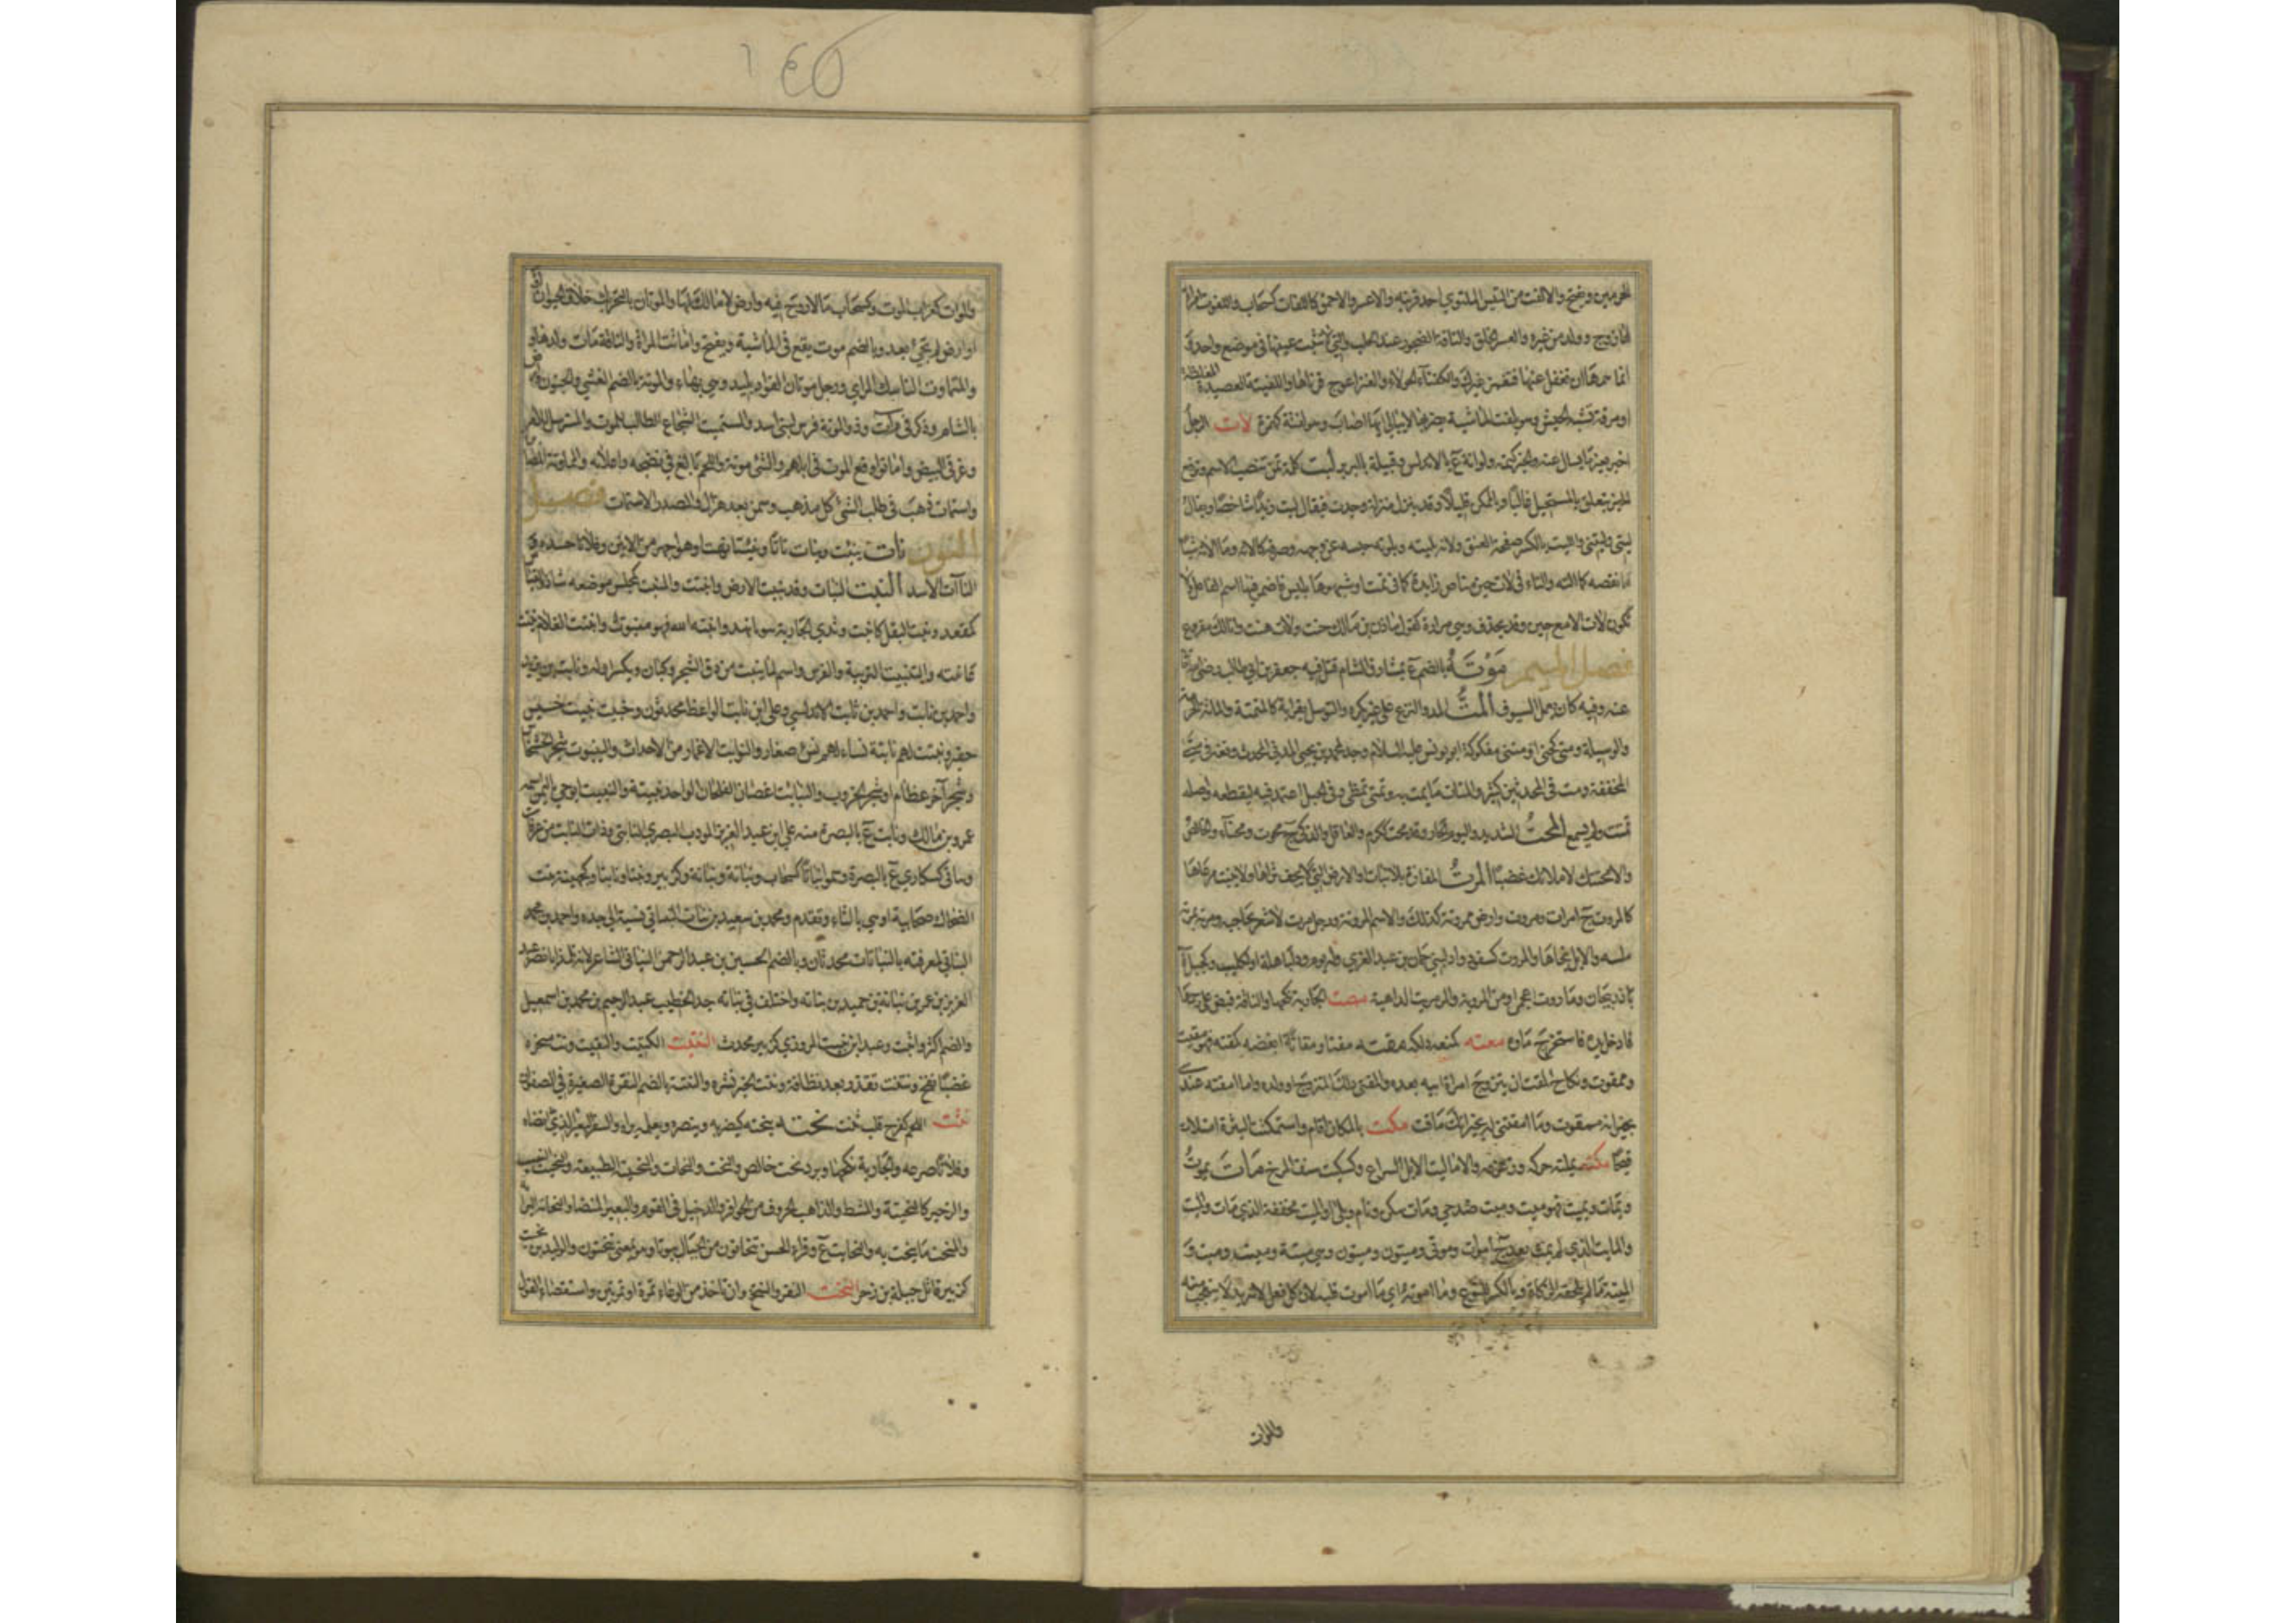 الحرمين وبفتح والالفت من التيس الملتوي احد قرنيه والاعسر والاحمق كاللفات كسحاب واللفوت امراة
لها زوج وولد من غيره والعسر الخلق والناقة الضجور عند الحلب والتي لا تثبت عينها في موضع واحد و
انما همها ان تغفل عنها فتغمز غيرك والكفتاء الحولاء والعنز اعوج قرناها واللفيتة العصيدة المغلظة
او مرقة تشبه الحيس وهو يلفت الماشية يضربها لا يبالي ايها اصاب وهو لفتة كهمزة لات الرجل
اخبر بغير ما يسال عنه والخبر كتمه ولواتة ع بالاندلس وقبيلة بالبربر ليت كلمة تمن تنصب الاسم وترفع
الخبر تتعلق بالمستحيل غالبا وبالممكن قليلا وقد ينزل منزلة وجدت فيقال ليت زيدا شاخصا ويقال
ليتي وليتني والليت بالكسر صفحة العنق ولاته يليته ويلوته حبسه عن وجهه وصرفه كالاته وما الاته شيا
ما نقصه كما الته والتاء في لات حين مناص زايدة كما في ثمت او شبهوها بليس فاضمر فيها اسم الفاعل ولا
تكون لات الا مع حين وقد يحذف وهي مرادة كقول مازن بن مالك حنت ولات هنت وانا لك مقروع
فصل الميم مؤتة بالضم ع بمشارق الشام قتل فيه جعفر بن ابي طالب رضي الله
عنه وفيه كان يعمل السيوف المت المد والنزع على غير بكرة والتوسل بقرابة كالمتمتة والماتة الحرمة
والوسيلة ومتى كحتى او متتى مفكوكة ابو يونس عليه السلام وجد محمد بن يحيى المدني المحدث ولغة في متى
المخففة ومت في المحدثين كثير والمتات ما يمت به وتمتى تمطى وفي الحبل اعتمد فيه ليقطعه واصله
تمتت ولم يسمع المحت الشديد واليوم الحار وقد محت ككرم والعاقل والذكي ج محوت ومحتاء والخالص
ولامحتنك لاملانك غضبا المرت المفازة بلا نبات والارض التي لا يجف ثراها ولا ينبت مرعاها
كالمروت ج امرات ومروت وارض ممروتة كذلك والاسم المروتة ورجل مرت لا شعر بحاجبه ومرته يمرته
ملسه والابل نحاها والمروت كسفود واد لبني حمان بن عبد العزى وله يوم وبلد لباهلة او لكليب وكجبل ة
باذربيجان وماروت اعجمي او من المروتة والمرمريت الداهية مصت الجارية نكحها والناقة قبض على رحمها
فادخل يده فاستخرج ماءه معته كمنعه دلكه مقته مقتا ومقاتة ابغضه كمقته فهو مقيت
وممقوت ونكاح المقت ان يتزوج امراة ابيه بعده والمقتي ذلك المتزوج او ولده وما امقته عندي
يخبر انه ممقوت وما امقتني له يخبر انك ماقت مكت بالمكان اقام واستمكتت البثرة امتلات
قيحا مكته يملته حركه وزعزعه والاماليت الابل السراع وكسكيت سنف المرخ مات يموت
ويمات ويميت فهو ميت وميت ضد حي ومات سكن ونام وبلي او الميت مخففة الذي مات والميت
والمايت الذي لم يمت بعد ج اموات وموتى وميتون وميتون وهي ميتة وميتة وميت و
الميتة ما لم تلحقه الذكاة وبالكسر للنوع وما اموته اي ما اموت قلبه لان كل فعل لا يتزيد لا يتعجب منه
والموات
١٤٥
والموات كغراب الموت وكسحاب ما لا روح فيه وارض لا مالك لها والموتان بالتحريك خلاف الحيوان
او ارض لم تحي بعد وبالضم موت يقع في الماشية ويفتح واماتت المراة والناقة مات ولدها
والمتماوت الناسك المرائي ورجل موتان الفواد بليد وهي بهاء والموتة بالضم الغشي والجنون وارض
بالشام وذكر في م ا ت وذو الموتة فرس لبني اسد والمستميت الشجاع الطالب للموت والمسترسل للامر
وغرقئ البيض واماتوا وقع الموت في ابلهم والشئ موته واللحم بالغ في نضجه واغلائه والمماوتة المصابرة
واستمات ذهب في طلب الشئ كل مذهب وسمن بعد هزال والمصدر الاستمات فصل
النون نات ينئت وينات ناتا ونئيتا نهت او هو اجهر من الانين وفلانا حسده و
النآت الاسد النبت النبات وقد نبتت الارض وانبتت والمنبت كمجلس موضعه شاذ والقياس
كمقعد ونبت البقل كانبت وثدي الجارية نبوتا نهد وانبته الله فهو منبوت وانبت الغلام نبتت
عانته والتنبيت التربية والغرس واسم لما ينبت من دق الشجر وكباره ويكسر اوله ونابت بن يزيد
واحمد بن نابت واحمد بن نابت الاندلسي وعلي ابن نابت الواعظ محدثون وخبيت نبيت خسيس
حقير ونبتت لهم نابتة نشا لهم نش صغار والنوابت الاغمار من الاحداث والينبوت شجر الخشخاش
وشجر اخر عظام او شجر الخروب والنبايت اغصان الفلجان الواحد نبيتة والنبيت ابو حي باليمن اسمه
عمرو بن مالك ونابت ع بالبصرة منه علي ابن عبد العزيز المودب البصري النابتي وذات النابت من عرفات
ونباتى كسكارى ع بالبصرة وسموا نباتا كسحاب ونباتة ونباتة وكزبير ونبتا ونابتا وكجهينة بنت
الضحاك صحابية او هي بالثاء وتقدم ومحمد بن سعيد بن نبات النباتي نسبة الى جده واحمد بن محمد
النباتي لمعرفته بالنباتات محدثان وبالضم الحسين بن عبد الرحمن النباتي الشاعر لانه تلمذ ابا نصر عبد
العزيز بن عمر بن نباتة بن حميد بن نباتة واختلف في نباتة جد الخطيب عبد الرحيم بن محمد بن اسمعيل
والضم اكثر واثبت وعبد الله بن نبيت المروزي كزبير محدث النتيت الكتيت والنفيت ونتت منخره
غضبا نفخ ونتنت تقذر بعد نظافة ونتت الخبر نشره والنتة بالضم النقرة الصغيرة في الصفاة
نثت اللحم كفرح قلب ثنت نحته ينحته كيضربه وينصره ويعلمه براه والسفر البعير انضاه
وفلانا صرعه والجارية نكحها وبرد نحت خالص والنحت والنحات والنحيتة الطبيعة والنحيت النحيب
والزحير كالنحيتة والمشط والذاهب الحروف من الحوافر والدخيل في القوم والبعير المنضى والنحاتة البراية
والمنحت ما ينحت به والنحايت ع وقرا الحسن تنحاتون من الجبال بيوتا وهو بمعنى تنحتون والوليد بن نحيت
كزبير قاتل جبلة بن زحر النخت النقر والنتخ وان تاخذ من الوعاء تمرة او تمرتين واستقصاء القول